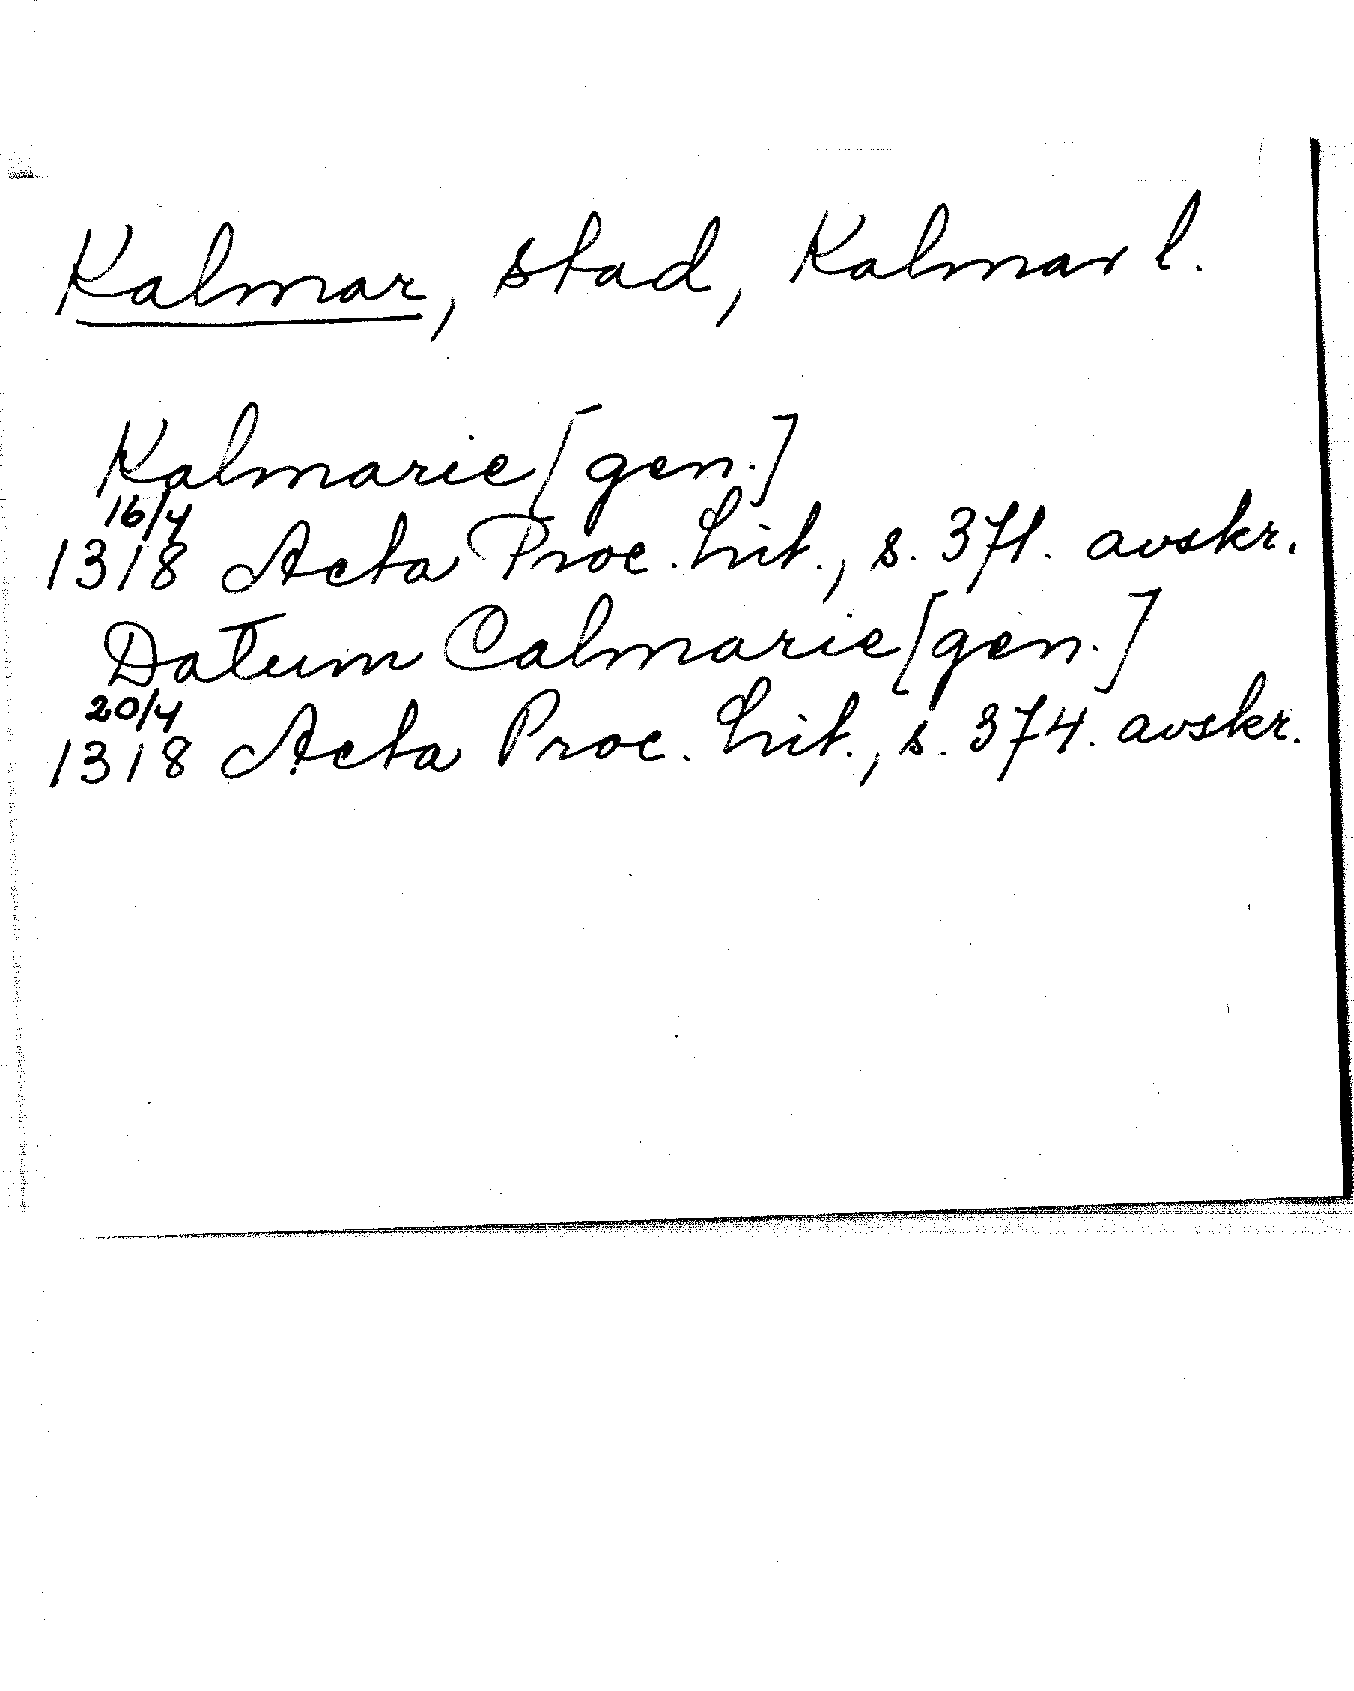 Kalmar, stad, Kalmar l.
Kalmarie [gen.]
16/4
1318 Acta Proc. Lit., s. 371. avskr.
Datum Calmarie [gen.]
20/4
1318 Acta Proc. Lit., s. 374. avskr.